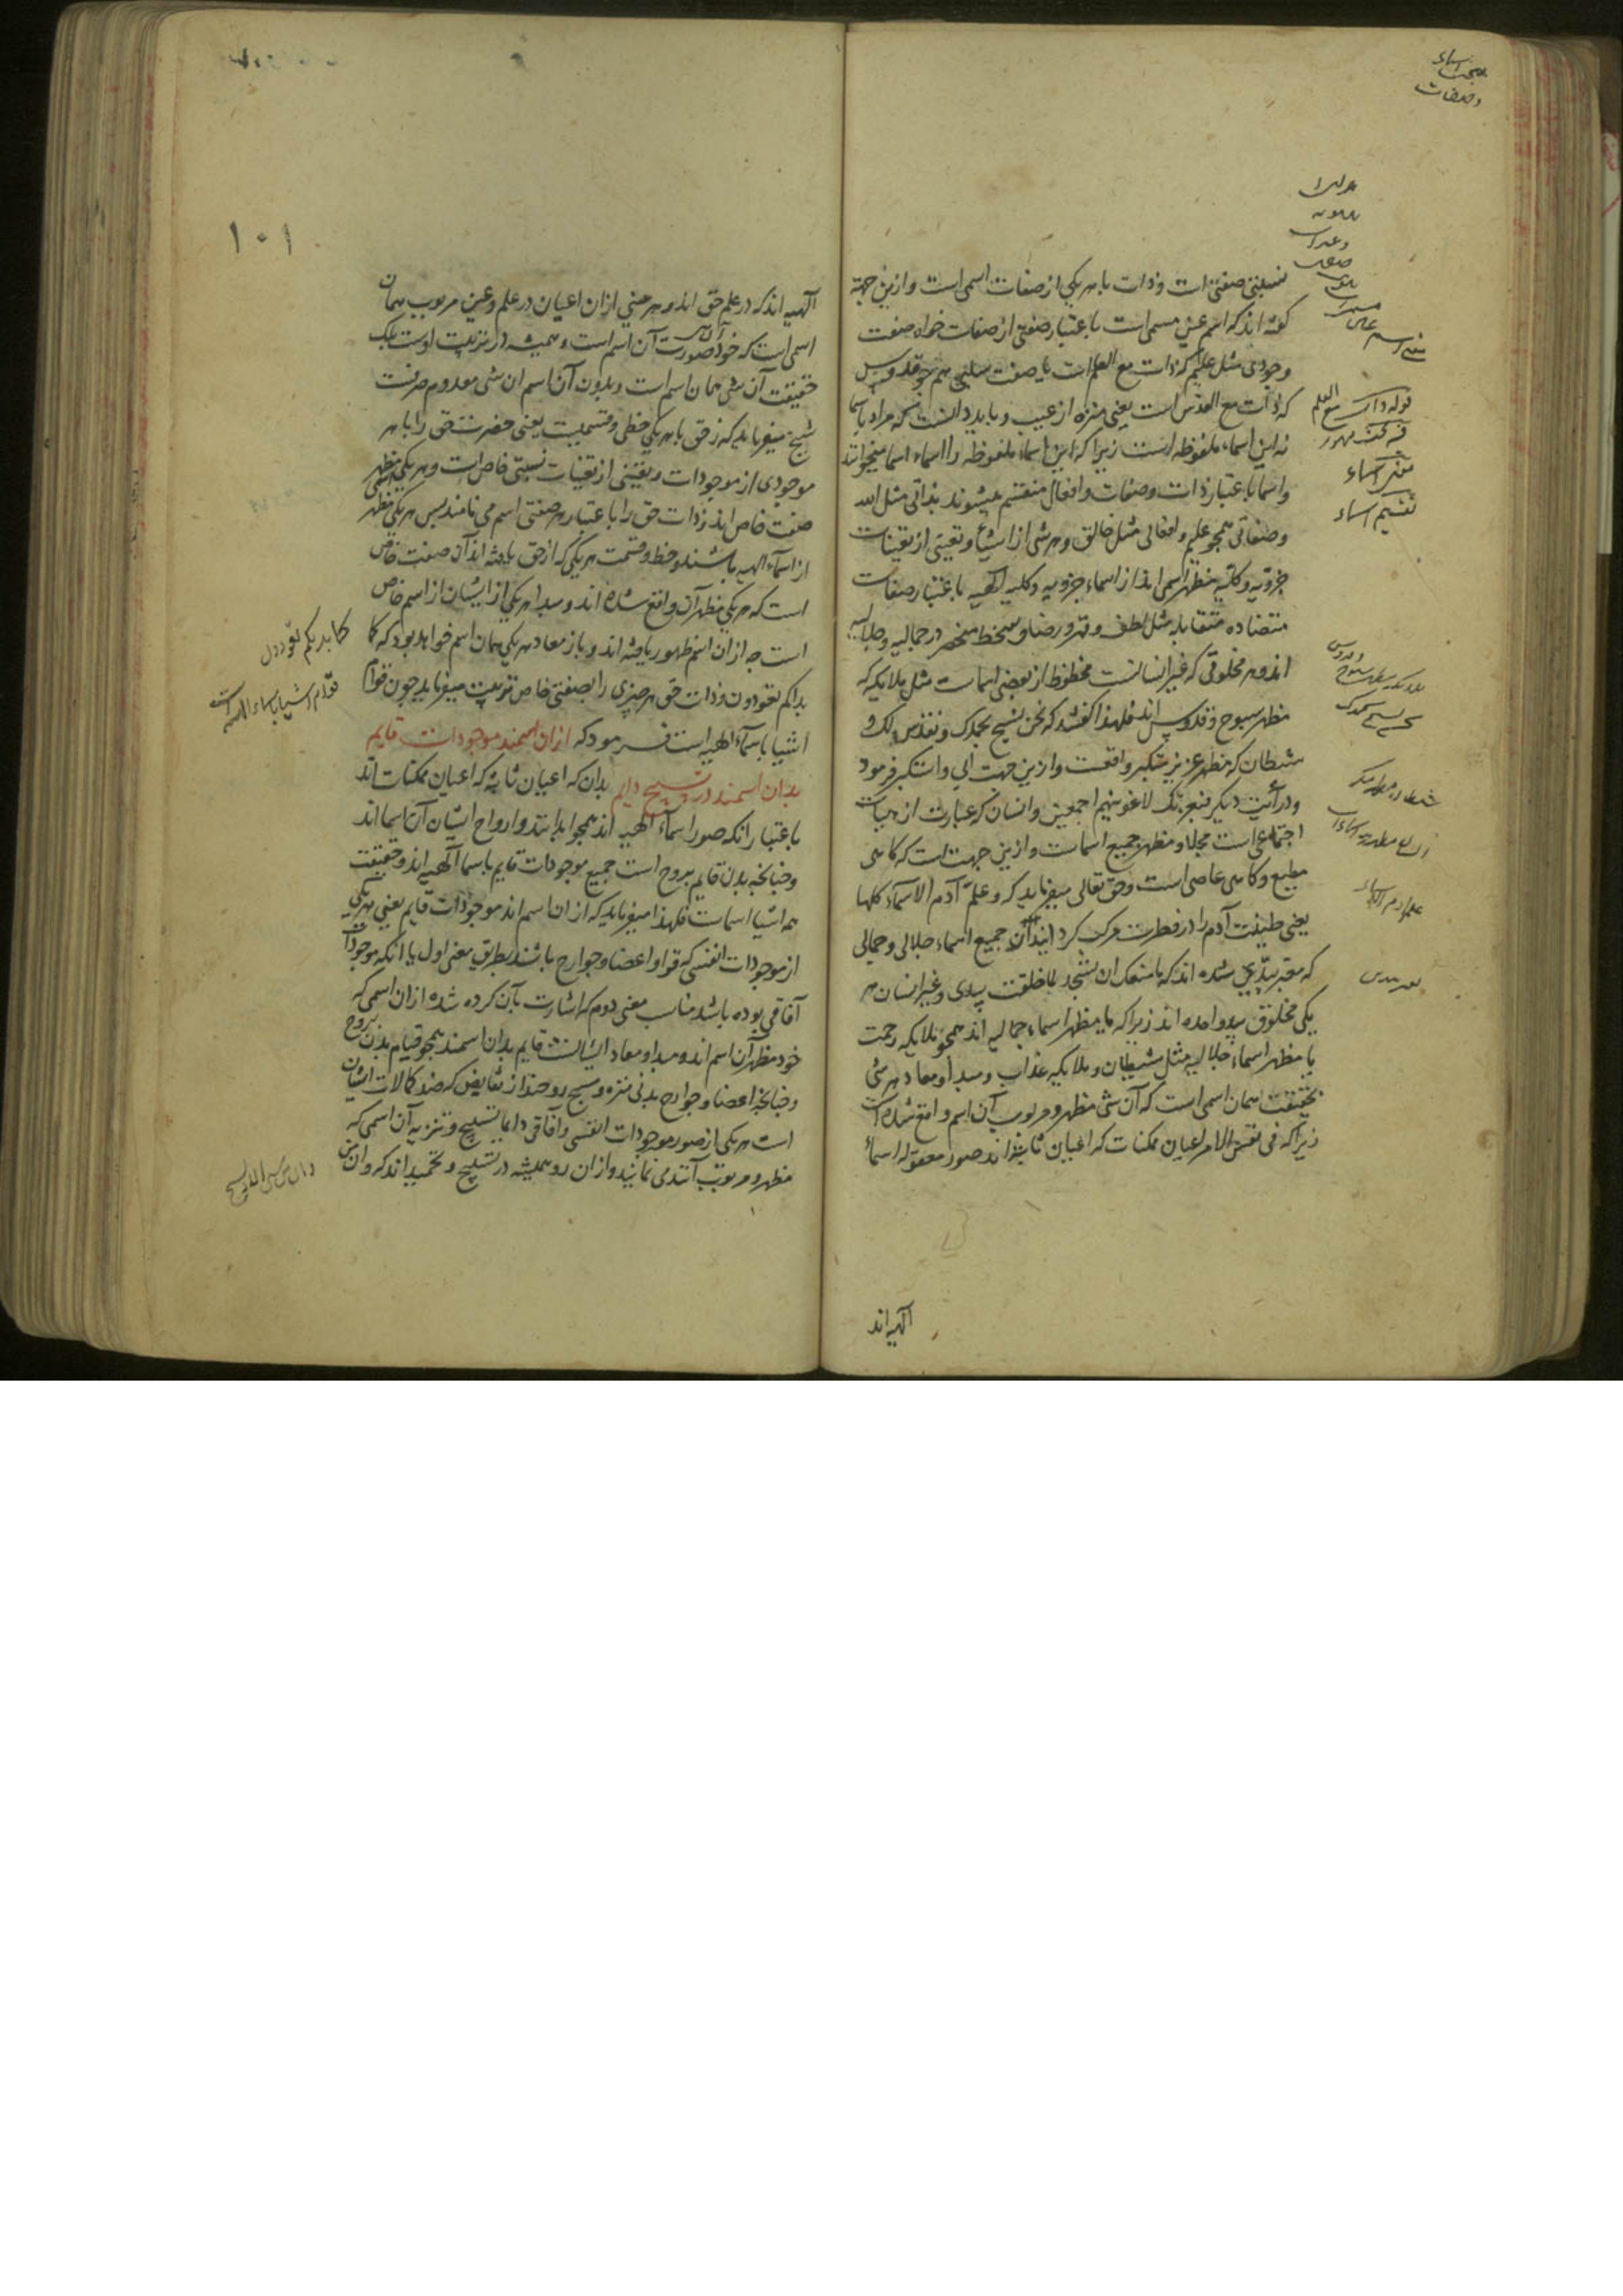 نسبتی صفتی است و ذات با هر یکی از صفات اسمی است و ازین جهة
گفته اند که اسم عین مسمی است باعتبار صفتی از صفات خواه صفت
وجودی مثل علیم که ذات مع العلم است یا صفت سلبی همچو قدوس
که ذات مع القدس است یعنی منزه از عیب و باید دانست که مراد باسما
نه این اسماء ملفوظه است زیرا که این اسماء ملفوظه را اسماء اسما میخوانند
و اسما باعتبار ذات و صفات و افعال منقسم میشوند بذاتی مثل الله
و صفاتی همچو علیم و افعالی مثل خالق و هر شی از اشیا و تعینی از تعینات
جزویه و کلیه مظهر اسمی اند از اسماء جزویه و کلیه الهیه باعتبار صفات
متضاده متقابله مثل لطف و قهر و رضا و سخط منحصر در جمالیه و جلالیه
اند و هر مخلوقی که غیر انسانست محظوظ از بعضی اسماست مثل ملایکه که
مظهر سبوح و قدوس اند فلهذا گفتند که نحن نسبح بحمدک و نقدس لک و
شیطان که مظهر عزیز متکبر واقعست و ازین جهت ابی و استکبر فرمود
و در آیت دیگر فبعزتک لاغوینهم اجمعین و انسان که عبارت از هیات
اجتماعی است مجلا و مظهر جمیع اسماست و ازین جهت است که گاهی
مطیع و گاهی عاصی است و حق تعالی میفرماید که و علم آدم الاسماء کلها
یعنی طینت آدم را در فطرت مرکب گردانید از جمیع اسماء جلالی و جمالی
که معبر بیدی شده اند که ما منعک ان تسجد لما خلقت بیدی و غیر انسان هر
یکی مخلوق بید واحده اند زیرا که یا مظهر اسماء جمالیه اند همچو ملایکه رحمت
یا مظهر اسماء جلالیه مثل شیطان و ملایکه عذاب و مبدأ و معاد هر شی
بحقیقت همان اسمی است که آن شی مظهر و مربوب آن اسم واقع شده است
زیرا که فی نفس الامر اعیان ممکنات که اعیان ثابته اند صور معقوله اسماء
الهیه اند
مبحث اسماء
و صفات
قوله ذات مع العلم
تقسیم اسماء
علم ادم الاسماء
۱۰۱
الهیه اند که در علم حق اند و هر عینی ازان اعیان در علم و عین مربوب همان
اسمی است که خود صورت آن اسم است و همیشه در تربیت اوست بلک
حقیقت آن شی همان اسم است و بدون آن اسم ان شی معدوم صرفست
شیخ میفرماید که ز حق با هر یکی حظی و قسمیست یعنی حضرت حق را با هر
موجودی از موجودات و تعینی از تعینات نسبتی خاص است و هر یکی مظهر
صفت خاص اند و ذات حق را باعتبار هر صفتی اسم می نامند پس هر یکی مظهر
از اسماء الهیه باشند و حظ و قسمت هر یکی که از حق یافته اند آن صفت خاص
است که هر یکی مظهر آن واقع شده اند و مبدا هر یکی از ایشان از اسم خاص
است چه ازان اسم ظهور یافته اند و باز معاد هر یکی همان اسم خواهد بود که کما
بداکم تعودون و ذات حق هر چیزی را بصفتی خاص تربیت میفرماید چون قوام
اشیا باسماء الهیه است فرمود که ازان اسمند موجودات قایم
بدان اسمند در تسبیح دایم بدان که اعیان ثابته که اعیان ممکنات اند
باعتبار انکه صور اسماء الهیه اند همچو ابدانند و ارواح ایشان آن اسما اند
و چنانچه بدن قایم بروح است جمیع موجودات قایم باسما الهیه اند و حقیقت
همه اشیا اسماست فلهذا میفرماید که ازان اسم اند موجودات قایم یعنی هر یکی
از موجودات انفسی که قوا و اعضا و جوارح باشند بطریق معنی اول یا انکه موجودات
آفاقی بوده باشد مناسب معنی دوم که اشارت بآن کرده شده ازان اسمی که
خود مظهر آن اسم اند و مبدا و معاد ایشانست قایم بدان اسمند همچو قیام بدن بروح
و چنانچه اعضا و جوارح بدنی منزه و مسبح روحند از نقایض که ضد کمالات ایشان
است هر یکی از صور موجودات انفسی و آفاقی دایما تسبیح و تنزیه آن اسمی که
مظهر و مربوب آنند می نمایند و ازان رو همیشه در تسبیح و تحمیدند که و ان من
کما بدءکم تعودون
قوام اشیا باسماء الهیه است
و ان من شی الا یسبح